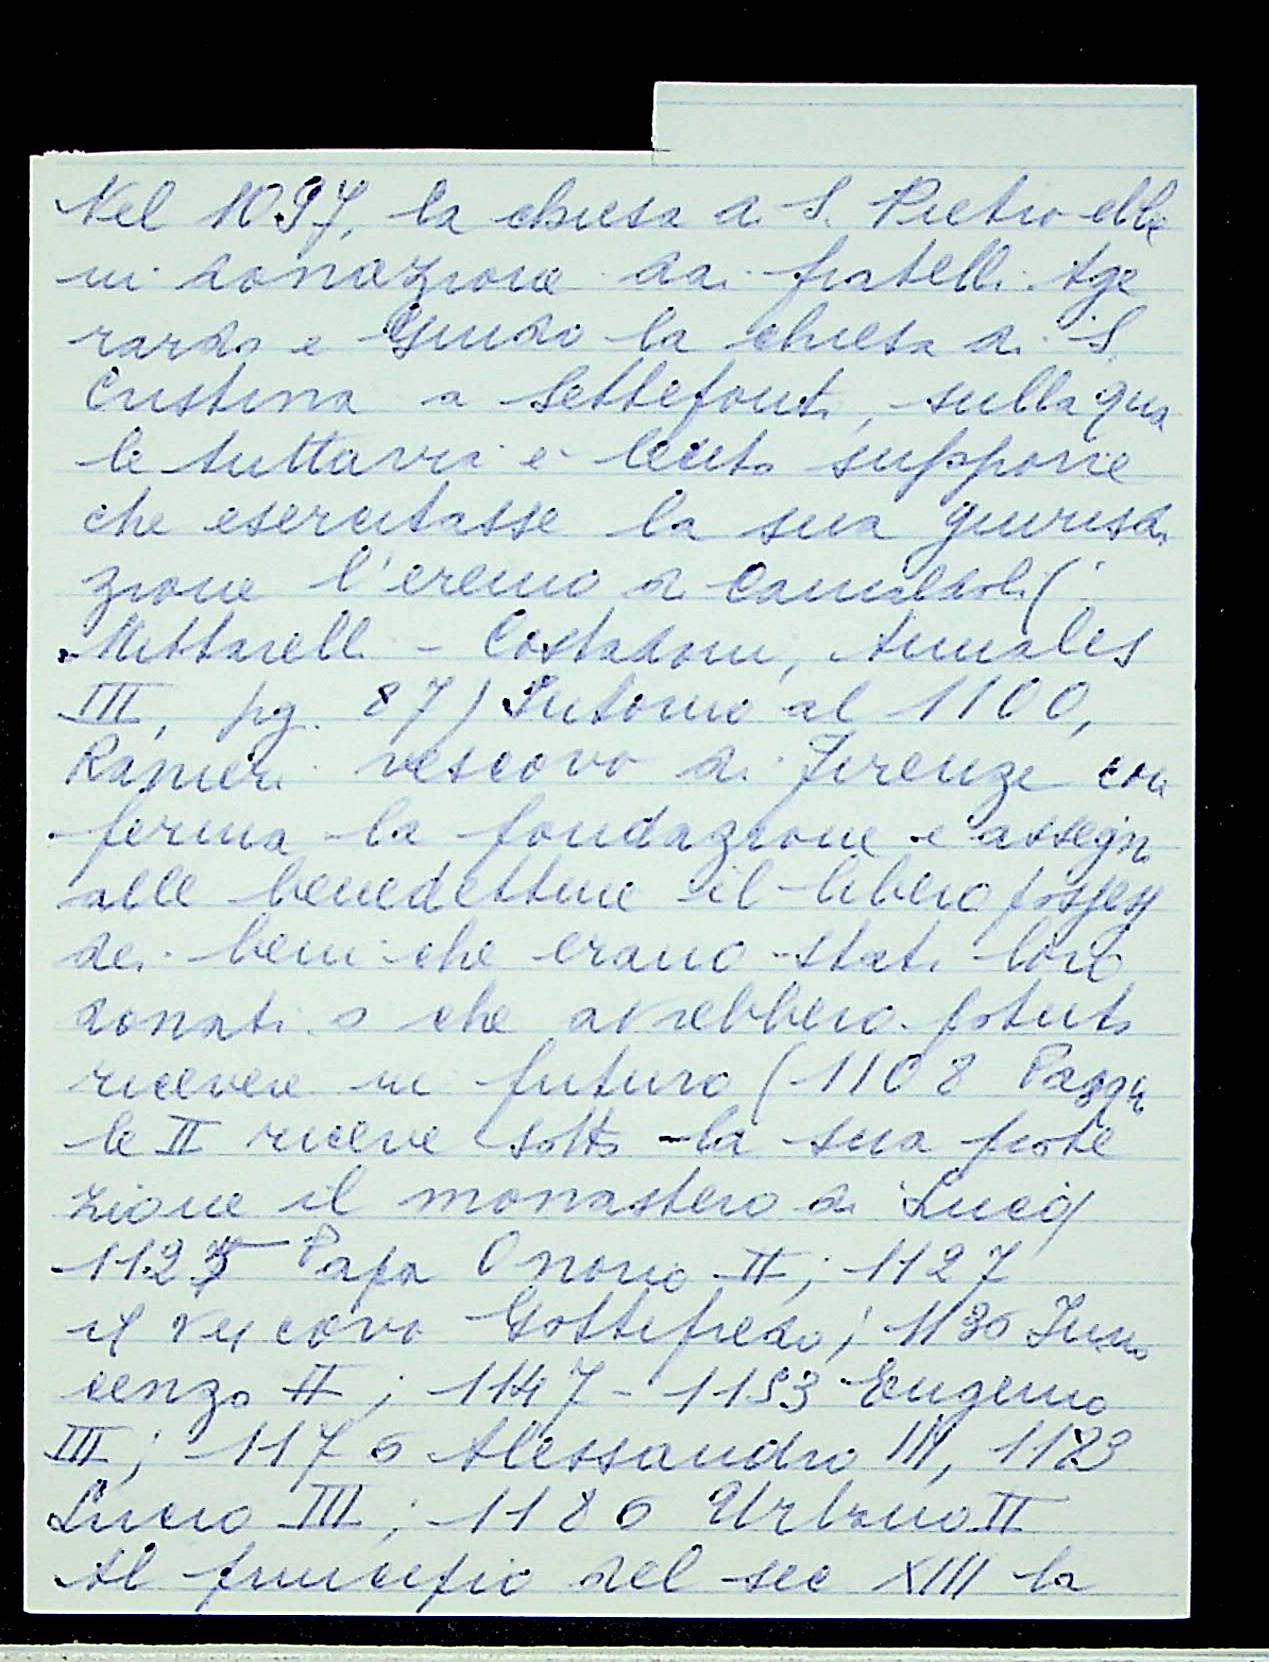 Nel 1097, la chiesa di S. Pietro ebbe
in donazione dai fratelli Age
rardo e Guido la chiesa di S.
Cristina a Settefonti, sulla qua
le tuttavia è lecito supporre
che esercitasse la sua giurisdi
zione l'eremo di Camaldoli (
Mittarelli - Costadoni, Annales
III, pg. 87) Intorno al 1100,
Ranieri vescovo di Firenze con
ferma la fondazione e assegn
alle benedettine il libero possess
dei beni che erano stati loro
donati o che avrebbero potuto
ricevere in futuro (1108 Pasqua
le II riceve sotto la sua prote
zione il monastero di Luco)
1125 Papa Onorio II; 1127
il vescovo Gottifredo; 1136 Inno
cenzo II; 1147-1153 Eugenio
III; 1176 Alessandro III, 1183
Lucio III; 1186 Urbano II
Al principio del sec XIII la